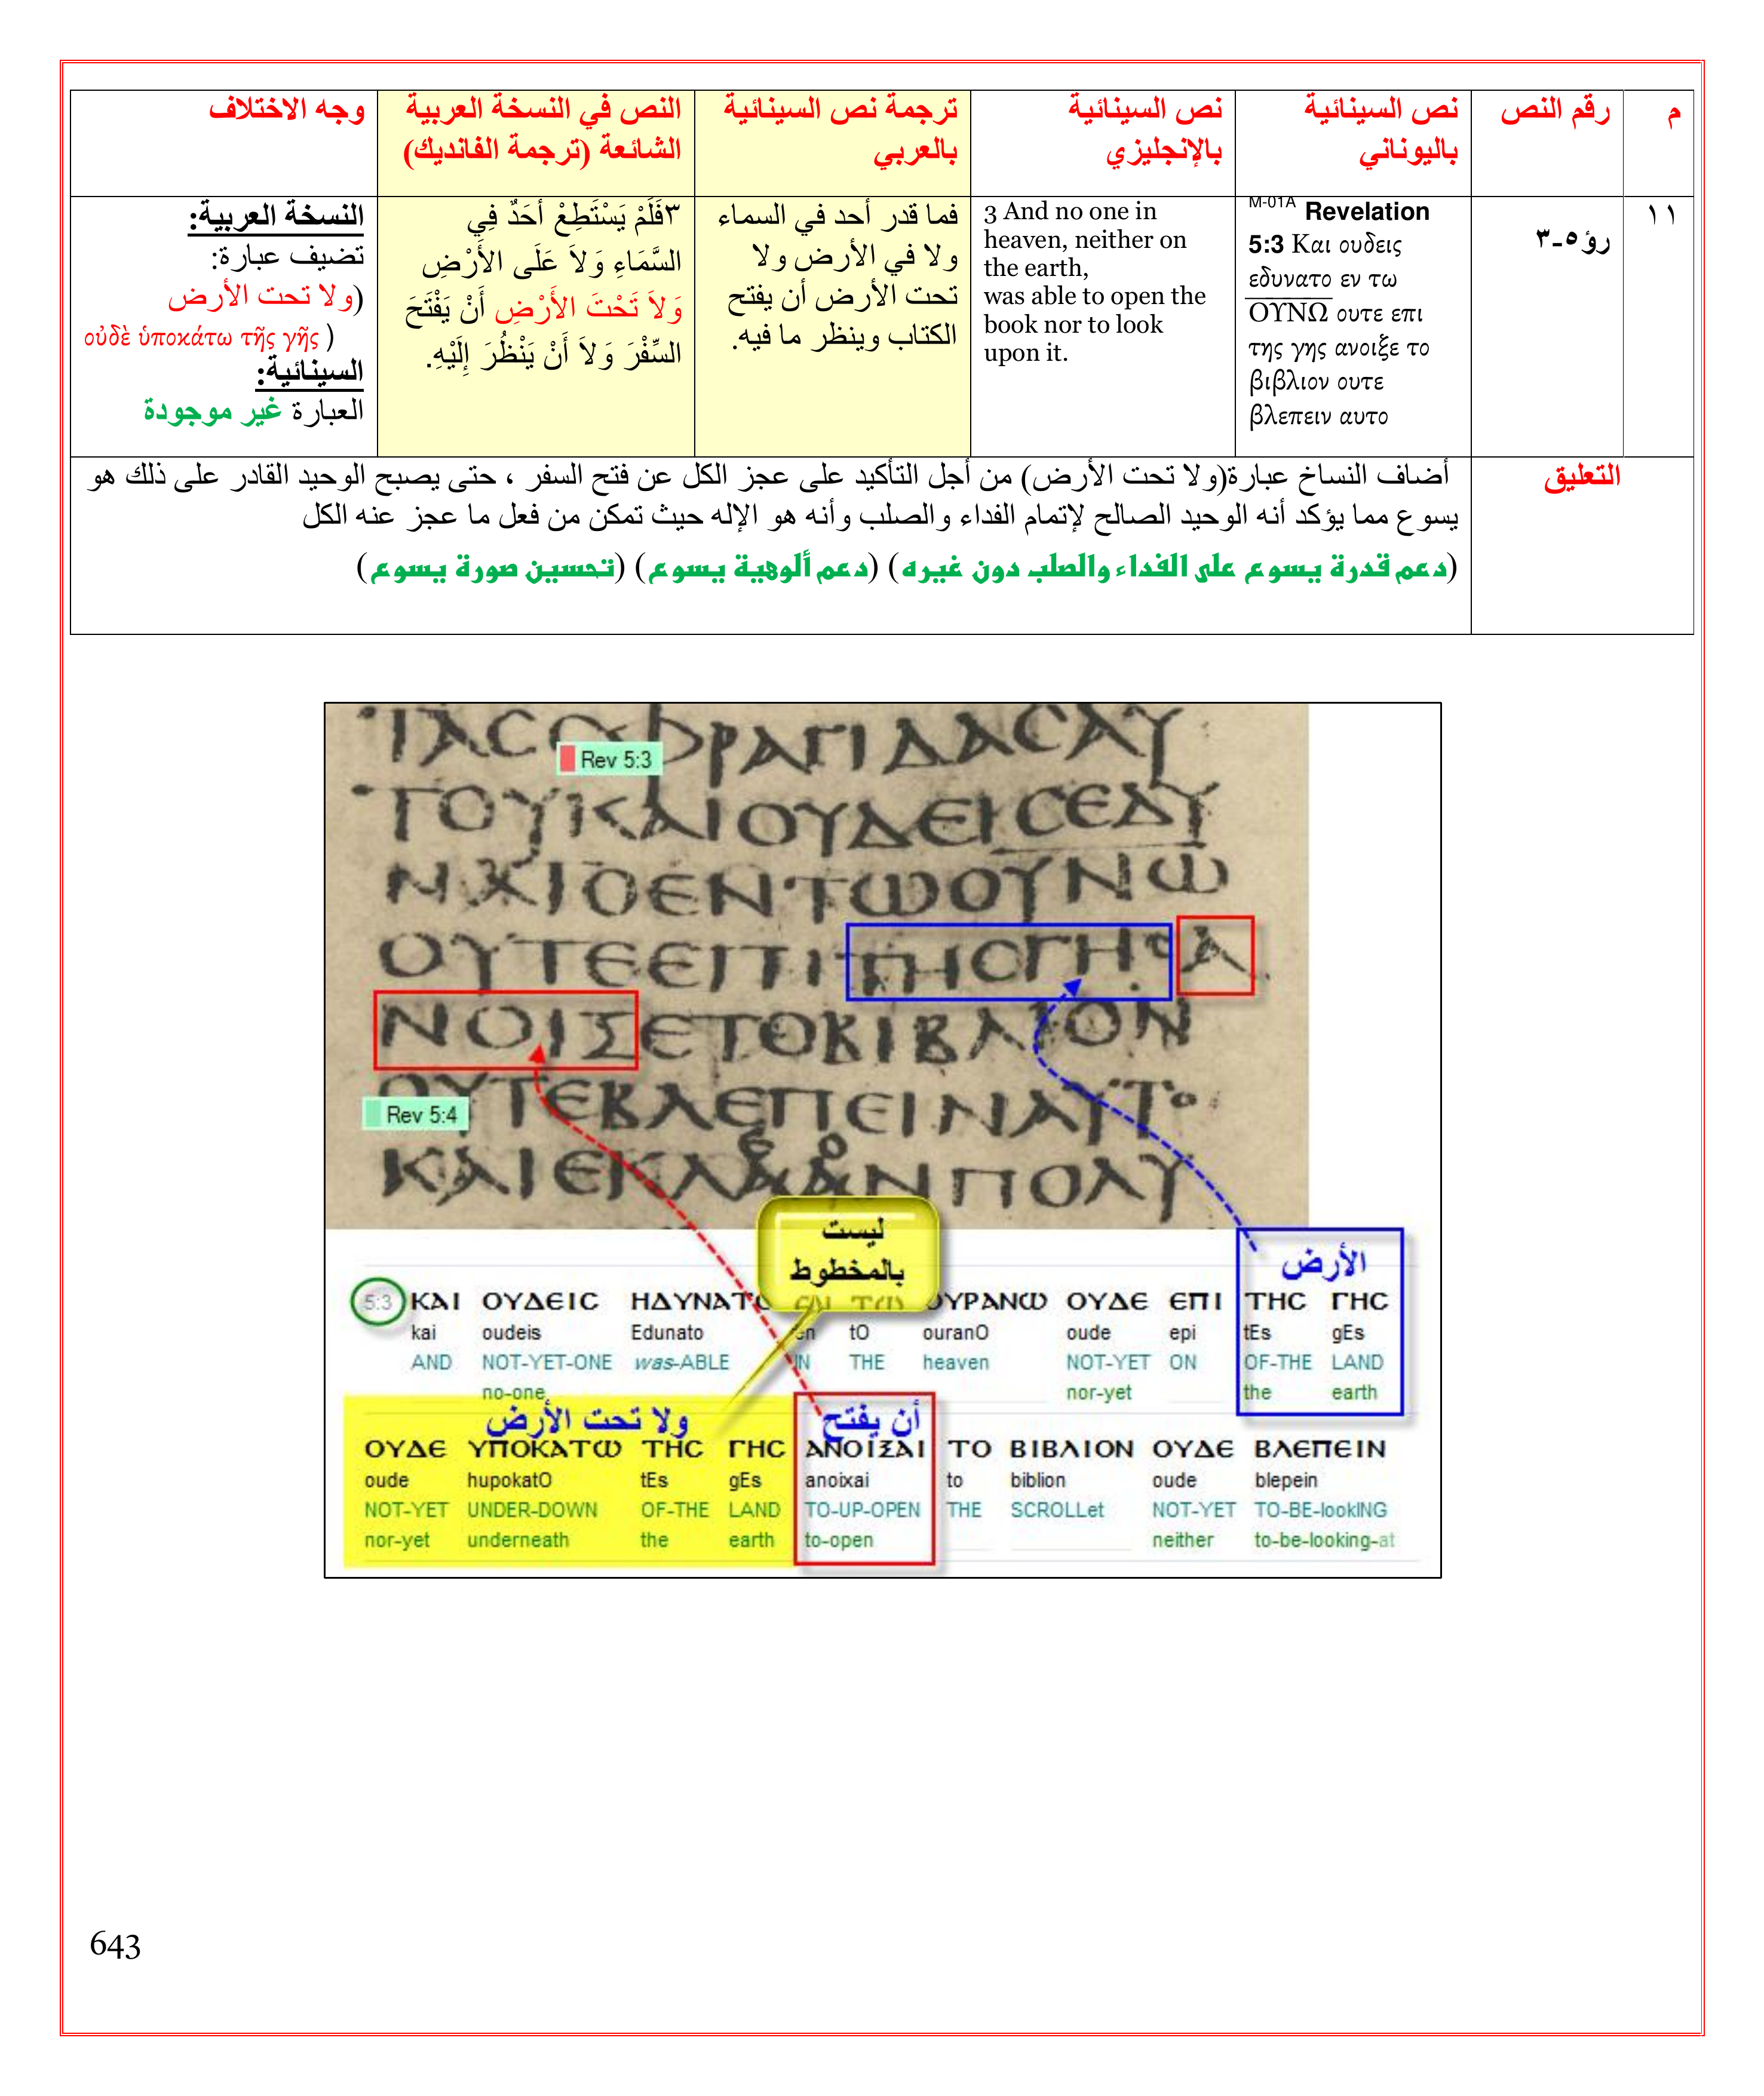 م
رقم النص
نص السينائية
باليوناني
نص السينائية
بالإنجليزي
ترجمة نص السينائية
بالعربي
النص في النسخة العربية
الشائعة (ترجمة الفانديك)
وجه الاختلاف
١١
رؤ٥-٣
M-01A Revelation
5:3 Και ουδεις
εδυνατο εν τω
ΟΥΝΩ ουτε επι
της γης ανοιξε το
βιβλιον ουτε
βλεπειν αυτο
3 And no one in
heaven, neither on
the earth,
was able to open the
book nor to look
upon it.
فما قدر أحد في السماء
ولا في الأرض ولا
تحت الأرض أن يفتح
الكتاب وينظر ما فيه.
٣فَلَمْ يَسْتَطِعْ أَحَدٌ فِي
السَّمَاءِ وَلاَ عَلَى الأَرْضِ
وَلاَ تَحْتَ الأَرْضِ أَنْ يَفْتَحَ
السِّفْرَ وَلاَ أَنْ يَنْظُرَ إِلَيْهِ.
النسخة العربية:
تضيف عبارة:
(ولا تحت الأرض
οὐδὲ ὑποκάτω τῆς γῆς )
السينائية:
العبارة غير موجودة
التعليق
أضاف النساخ عبارة(ولا تحت الأرض) من أجل التأكيد على عجز الكل عن فتح السفر ، حتى يصبح الوحيد القادر على ذلك هو
يسوع مما يؤكد أنه الوحيد الصالح لإتمام الفداء والصلب وأنه هو الإله حيث تمكن من فعل ما عجز عنه الكل
(دعم قدرة يسوع على الفداء والصلب دون غيره) (دعم ألوهية يسوع) (تحسين صورة يسوع)
ΤΑϹϹΦΡΑΓΙΔΑϹΑΥ
Rev 5:3
ΤΟΥΚΑΙΟΥΔΕΙϹΕΔΥ
ΝΑΤΟΕΝΤΩΟΥΝΩ
ΟΥΤΕΕΠΙΤΗϹΓΗϹΑ
ΝΟΙΞΕΤΟΒΙΒΛΙΟΝ
ΟΥΤΕΒΛΕΠΕΙΝΑΥΤΟ
Rev 5:4
ΚΑΙΕΚΛΑΝΠΟΛΥ
ليست
بالمخطوط
الأرض
5:3 ΚΑΙ ΟΥΔΕΙϹ ΗΔΥΝΑΤΟ ΕΝ ΤΩ ΟΥΡΑΝΩ ΟΥΔΕ ΕΠΙ ΤΗϹ ΓΗϹ
kai oudeis Edunato en tO ouranO oude epi tEs gEs
AND NOT-YET-ONE was-ABLE IN THE heaven NOT-YET ON OF-THE LAND
no-one nor-yet the earth
ولا تحت الأرض أن يفتح
ΟΥΔΕ ΥΠΟΚΑΤΩ ΤΗϹ ΓΗϹ ΑΝΟΙΞΑΙ ΤΟ ΒΙΒΛΙΟΝ ΟΥΔΕ ΒΛΕΠΕΙΝ
oude hupokatO tEs gEs anoixai to biblion oude blepein
NOT-YET UNDER-DOWN OF-THE LAND TO-UP-OPEN THE SCROLLet NOT-YET TO-BE-lookING
nor-yet underneath the earth to-open neither to-be-looking-at
643